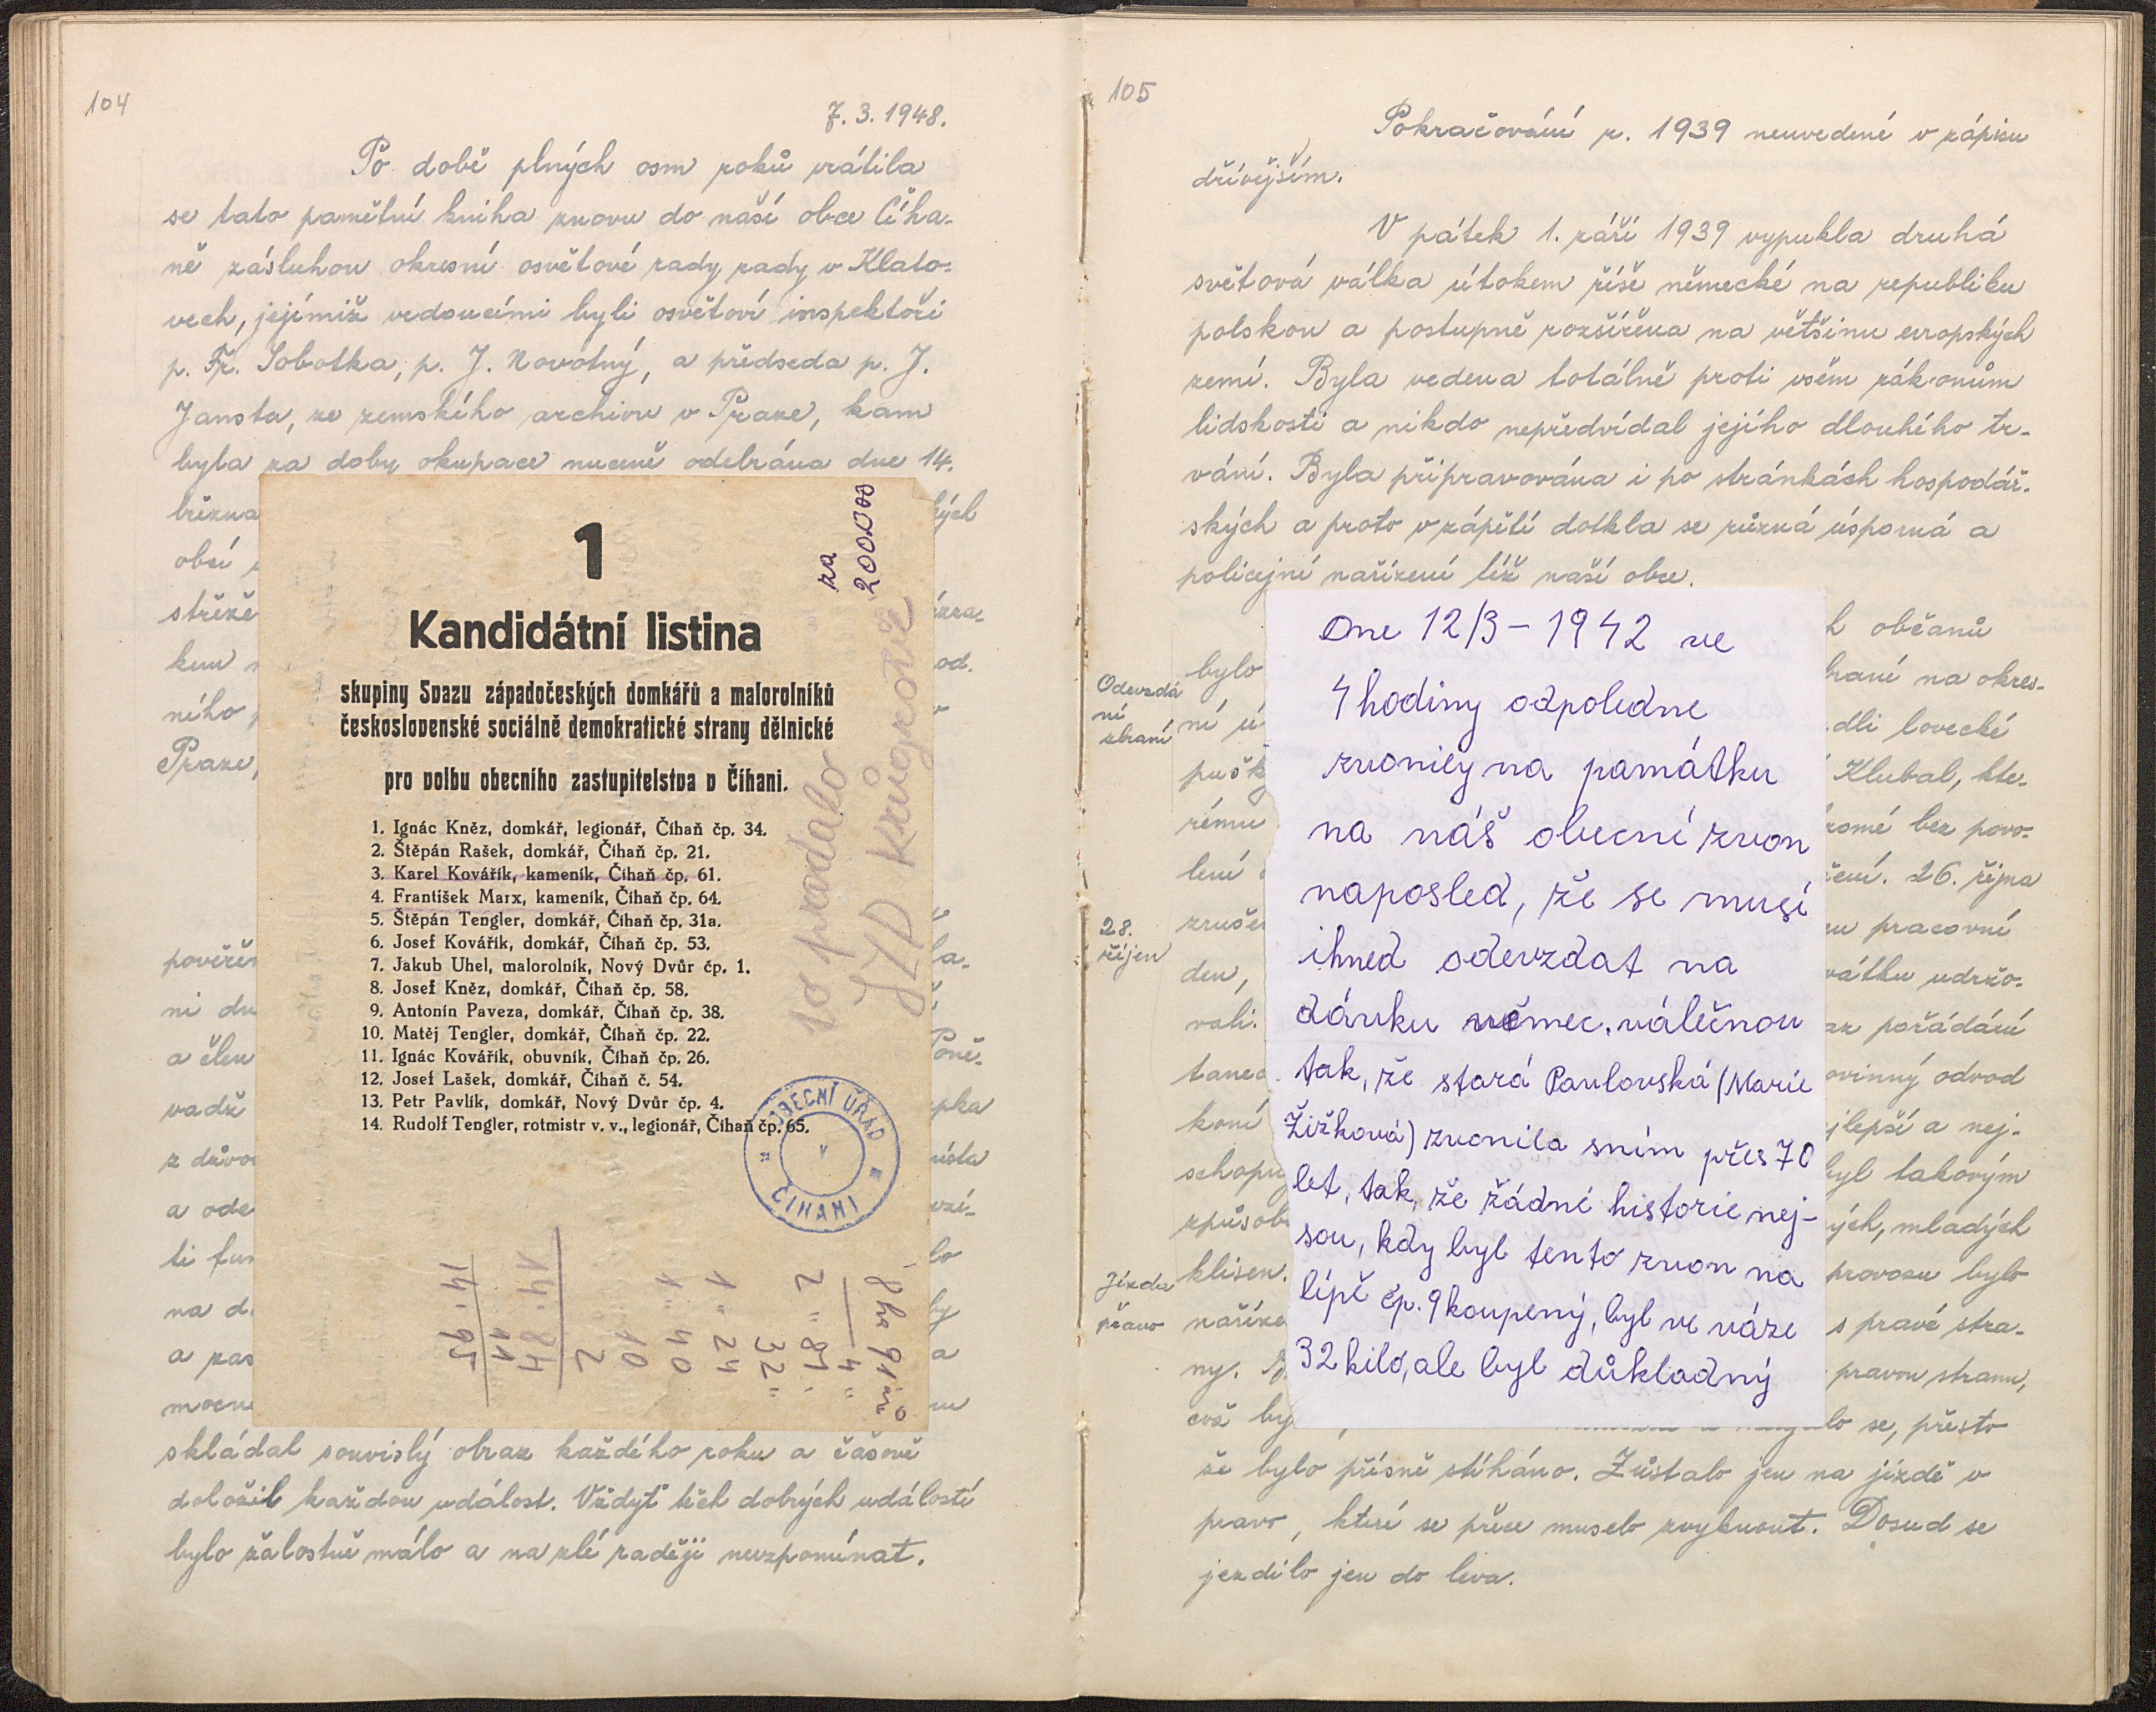 104
7. 3. 1948.
Po době plných osm roků vrátila
se tato pamětní kniha znovu do naší obce Číha-
ně zásluhou okresní osvětové rady rady v Klato-
vech, jejímiž vedoucími byli osvětoví inspektoři
p. Fr. Sobotka, p. J. Novotný, a předseda p. J.
Jansta, ze zemského archivu v Praze, kam
byla za doby okupace nuceně odebrána dne 14.
března
obcí
střeže
kem
ného
Praze,
pověřen
ni
a člen
vadž
z důvo
a ode
ti fun
na d
a zas
mocne
skládal souvislý obraz každého roku a časově
doložil každou událost. Vždyť těch dobrých událostí
bylo žalostně málo a na zlé raději nevzpomínat.
1
Kandidátní listina
skupiny Svazu západočeských domkářů a malorolníků
československé sociálně demokratické strany dělnické
pro volbu obecního zastupitelstva v Číhani.
1. Ignác Kněz, domkář, legionář, Číhaň čp. 34.
2. Štěpán Rašek, domkář, Číhaň čp. 21.
3. Karel Kovářík, kameník, Číhaň čp. 61.
4. František Marx, kameník, Číhaň čp. 64.
5. Štěpán Tengler, domkář, Číhaň čp. 31a.
6. Josef Kovářík, domkář, Číhaň čp. 53.
7. Jakub Uhel, malorolník, Nový Dvůr čp. 1.
8. Josef Kněz, domkář, Číhaň čp. 58.
9. Antonín Paveza, domkář, Číhaň čp. 38.
10. Matěj Tengler, domkář, Číhaň čp. 22.
11. Ignác Kovářík, obuvník, Číhaň čp. 26.
12. Josef Lašek, domkář, Číhaň č. 54.
13. Petr Pavlík, domkář, Nový Dvůr čp. 4.
14. Rudolf Tengler, rotmistr v. v., legionář, Číhaň čp. 65.
OBECNÍ ÚŘAD
v
ČÍHANI
to prodalo
JZD
za
20000
8 ha 91
4 "
2 " 89
32 "
1 " 24
1 " 40
10
2
14 . 84
11
14 . 95
105
Pokračování r. 1939 neuvedené v zápisu
dřívějším.
V pátek 1. září 1939 vypukla druhá
světová válka útokem říše německé na republiku
polskou a postupně rozšířena na většinu evropských
zemí. Byla vedena totálně proti všem zákonům
lidskosti a nikdo nepředvídal jejího dlouhého tr-
vání. Byla připravována i po stránkách hospodář-
ských a proto vzápětí dotkla se různá úsporná a
policejní nařízení též naší obce.
občanů
Odevzdá
ní
zbraní
bylo
na okres-
ní ú
lovecké
pušk
Klubal, kte-
rému
bez povo-
lení
26. října
28.
říjen
zrušen
pracovní
den,
udržo-
vali.
pořádání
tanec
povinný odvod
koní
jlepší a nej-
schopn
byl takovým
způsob
mladých
Jízda
v pravo
klisen.
provozu bylo
naříze
s pravé stra-
ny.
pravou stranu,
což by
se, přesto
že bylo přísně stíháno. Zůstalo jen na jízdě v
pravo, které se přece muselo zvyknout. Dosud se
jezdilo jen do leva.
Dne 12/3 - 1942 ve
4 hodiny odpoledne
zvonily na památku
na náš obecní zvon
naposled, že se musí
ihned odevzdat na
dávku němec. válečnou
tak, že stará Pavlovská (Marie
Žižková) zvonila sním přes 70
let, tak, že žádné historie nej-
sou, kdy byl tento zvon na
lípě čp. 9 koupený, byl ve váze
32 kilo, ale byl důkladný